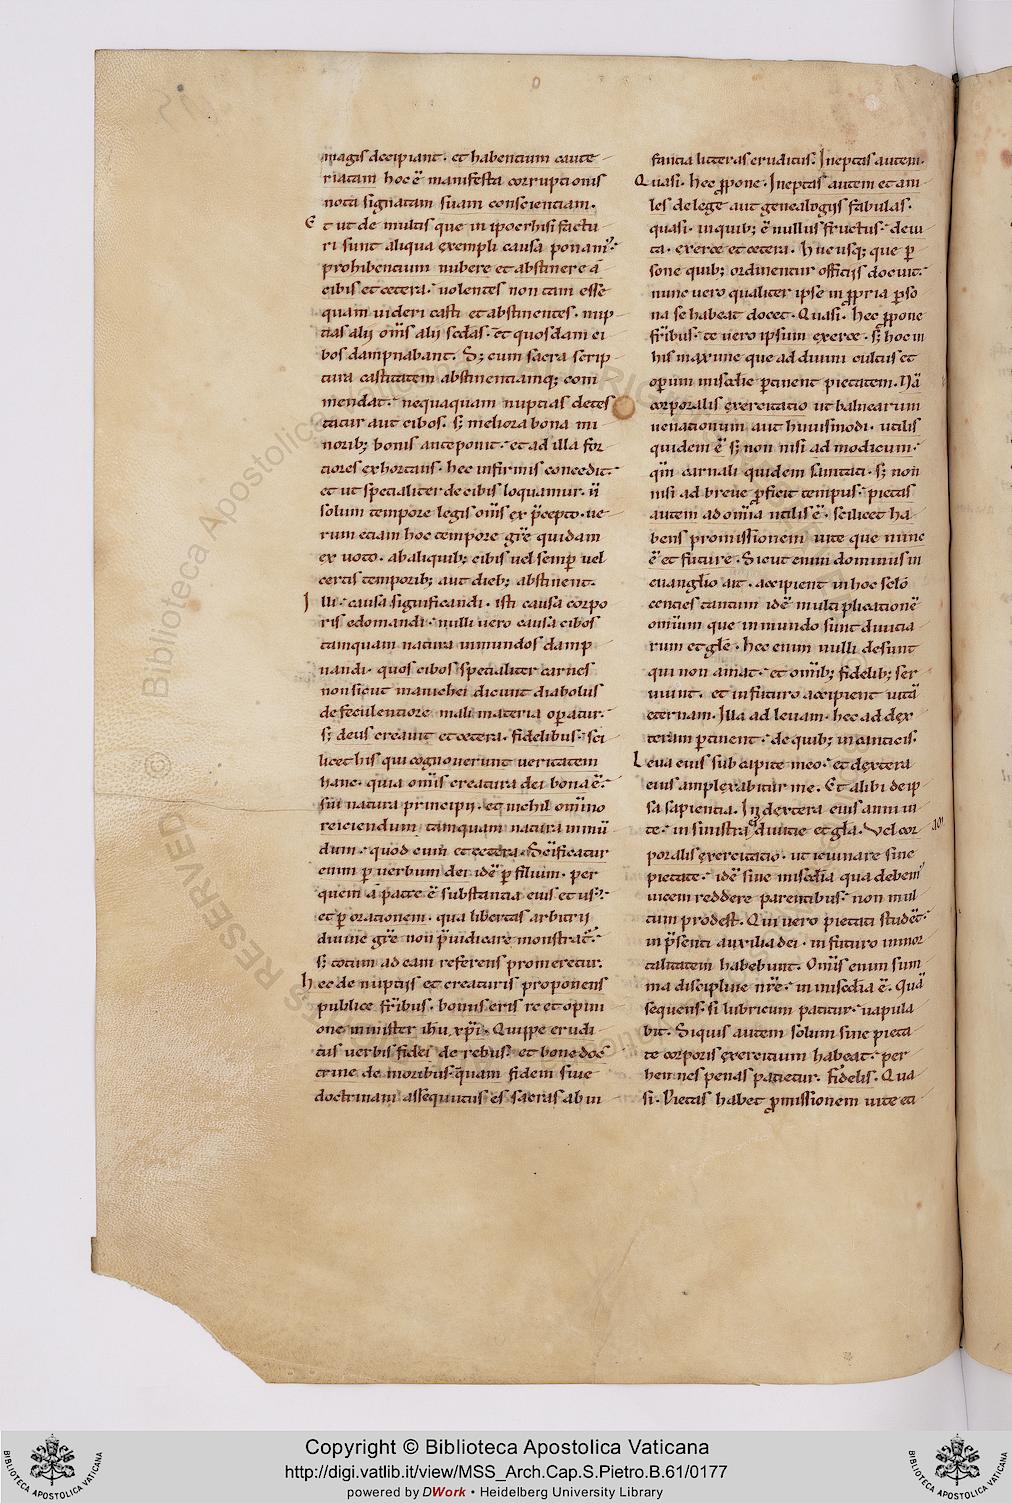 magis decipiant. et habentium caute
riatam hoc ē manifesta corruptionis
nota signatam suam conscientiam.
Et ut de multis que in ipocrhisi factu
ri sunt aliqua exempli causa ponam.
prohibentium nubere et abstinere a
cibis et cetera. volentes non tam esse
quam videri casti et abstinentes. nup
tias alij om̄s alij sedas. et quosdam ci
bos dampnabant. S; cum sacra scrip
tura castitatem abstinentiamq; com
mendat. nequaquam nuptias detes
tatur aut cibos. s; meliora bona mi
norib; bonis anteponit. et ad illa for
tiores exhortans. hec infirmis concedit.
et ut specialiter de cibis loquamur. n̄
solum tempore legis om̄s ex p̄cepto. ve
rum etiam hoc tempore gr̄e quidam
ex voto. ab aliquib; cibis vel semp̄ vel
certis temporib; aut dieb; abstinent.
Illi. causa significandi. isti causa corpo
ris edomandi. nulli vero causa cibos
tamquam natura inmundos damp
nandi. quos cibos specialiter carnes
non sicut manichei dicunt diabolus
de feculentiore mali materia op̄atur.
s; deus creavit et cetera. fidelibus. sci
licet his qui cognoverunt veritatem
hanc. quia om̄is creatura dei bona ē.
sui natura principij. et nichil om̄ino
reiciendum tamquam natura inmū
dum. quod cum et cetera. Sc̄ificatur
enim p̄ verbum dei idē p̄ filium. per
quem a patre ē substantia eius et us.
et p̄ orationem. qua libertas arbitrij
divine gr̄e non p̄iudicare monstrat̄.
s; totum ad eam referens promeretur.
hec de nuptijs et creaturis proponens
publice fr̄ibus. bonus eris re et opini
one minister ihu xp̄i. Quippe erudi
tus verbis fidei de rebus. et bone doc
trine de moribus. quam fidem sive
doctrinam assequutus es sacras ab in
fantia litteras eruditus. Ineptas autem.
Quasi. hec p̄pone. Ineptas autem et ani
les de lege aut genealogijs fabulas.
quasi. in quib; ē nullus fructus. devi
ta. exerce et cetera. Hucusq; que p̄
sone quib; ordinentur officijs docuit.
nunc vero qualiter ipse in p̄pria p̄so
na se habeat docet. Quasi. hec p̄pone
fr̄ibus. te vero ipsum exerce. s; hoc in
his maxime que ad divini cultus et
op̄um mis̄cdie p̄tinent pietatem. Nā
corporalis exercitatio ut balnearum
venationum aut huiusmodi. utilis
quidem ē. s; non nisi ad modicum.
qm̄ carnali quidem sanitati. s; non
nisi ad breve p̄ficit tempus. pietas
autem ad om̄ia utilis ē. scilicet ha
bens promissionem vite que nunc
ē et future. Sicut enim dominus in
evanglio ait. accipient in hoc sclo
centies tantum idē multiplicationē
omium que in mundo sunt divitia
rum et gle. hec enim nulli desunt
qui non amat. et om̄ib; fidelib; ser
viunt. et in futuro accipient vitā
eternam. Illa ad levam. hec ad dex
teram p̄tinent. de quib; in canticis.
Leva eius sub capite meo. et dextera
eius amplexabitur me. Et alibi de ip
sa sapientia. In dextera eius anni vi
te. in sinistra divitie et gla. Vel cor
poralis exercitatio. ut ieiunare sine
pietate. idē sine mis̄cdia qua debem
vicem reddere parentibus. non mul
tum prodest. Qui vero pietati studēt.
in p̄senti auxilia dei. in futuro inmor
talitatem habebunt. Om̄is enim sum
ma discipline nr̄e. in mis̄cdia ē. Quā
sequens. si lubricum patitur. vapula
bit. Siquis autem solum sine pieta
te corporis exercitium habeat. per
hennes penas patietur. Fidelis. Qua
si. Pietas habet p̄missionem vite et
BIBLIOTECA APOSTOLICA VATICANA
Copyright © Biblioteca Apostolica Vaticana
http://digi.vatlib.it/view/MSS_Arch.Cap.S.Pietro.B.61/0177
powered by DWork • Heidelberg University Library
BIBLIOTECA APOSTOLICA VATICANA